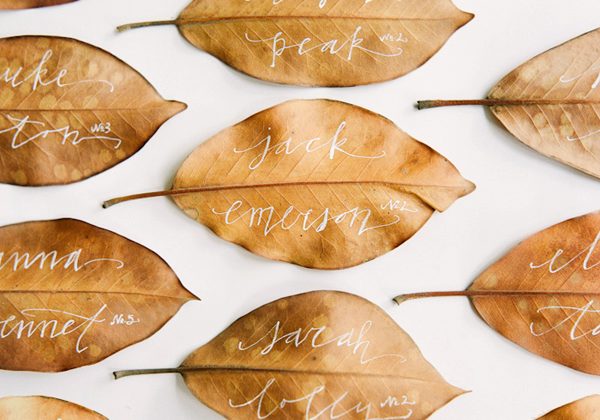 peak No. 2.
uke
ton No 3
jack
emerson No. 2.
anna
ennet No. 5.
sarah
No. 2.
el